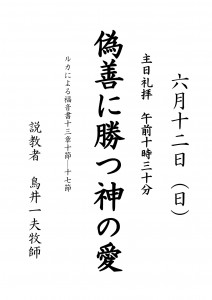 六月十二日（日）
主日礼拝　午前十時三十分
偽善に勝つ神の愛
ルカによる福音書十三章十節―十七節
説教者　鳥井一夫牧師